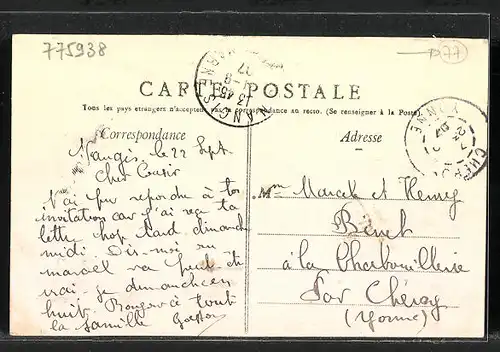 775938
D77
CARTE POSTALE
Tous les pays étrangers n'acceptent pas la correspondance au recto. (Se renseigner à la Poste)
Correspondance
Adresse
Nangis le 22 Sept.
Cher
N'ai pu répondre à ton
invitation car j'ai reçu ta
lettre trop tard dimanche
midi Dis-moi si
Marcel va peut être
vrai-je dimanche en
huit. Bonjour à toute
la famille Gaston
Mm Marcel et Henry
Benet
à la Charbonillerie
Par Chéroy
(Yonne)
NANGIS
13 45
YONNE